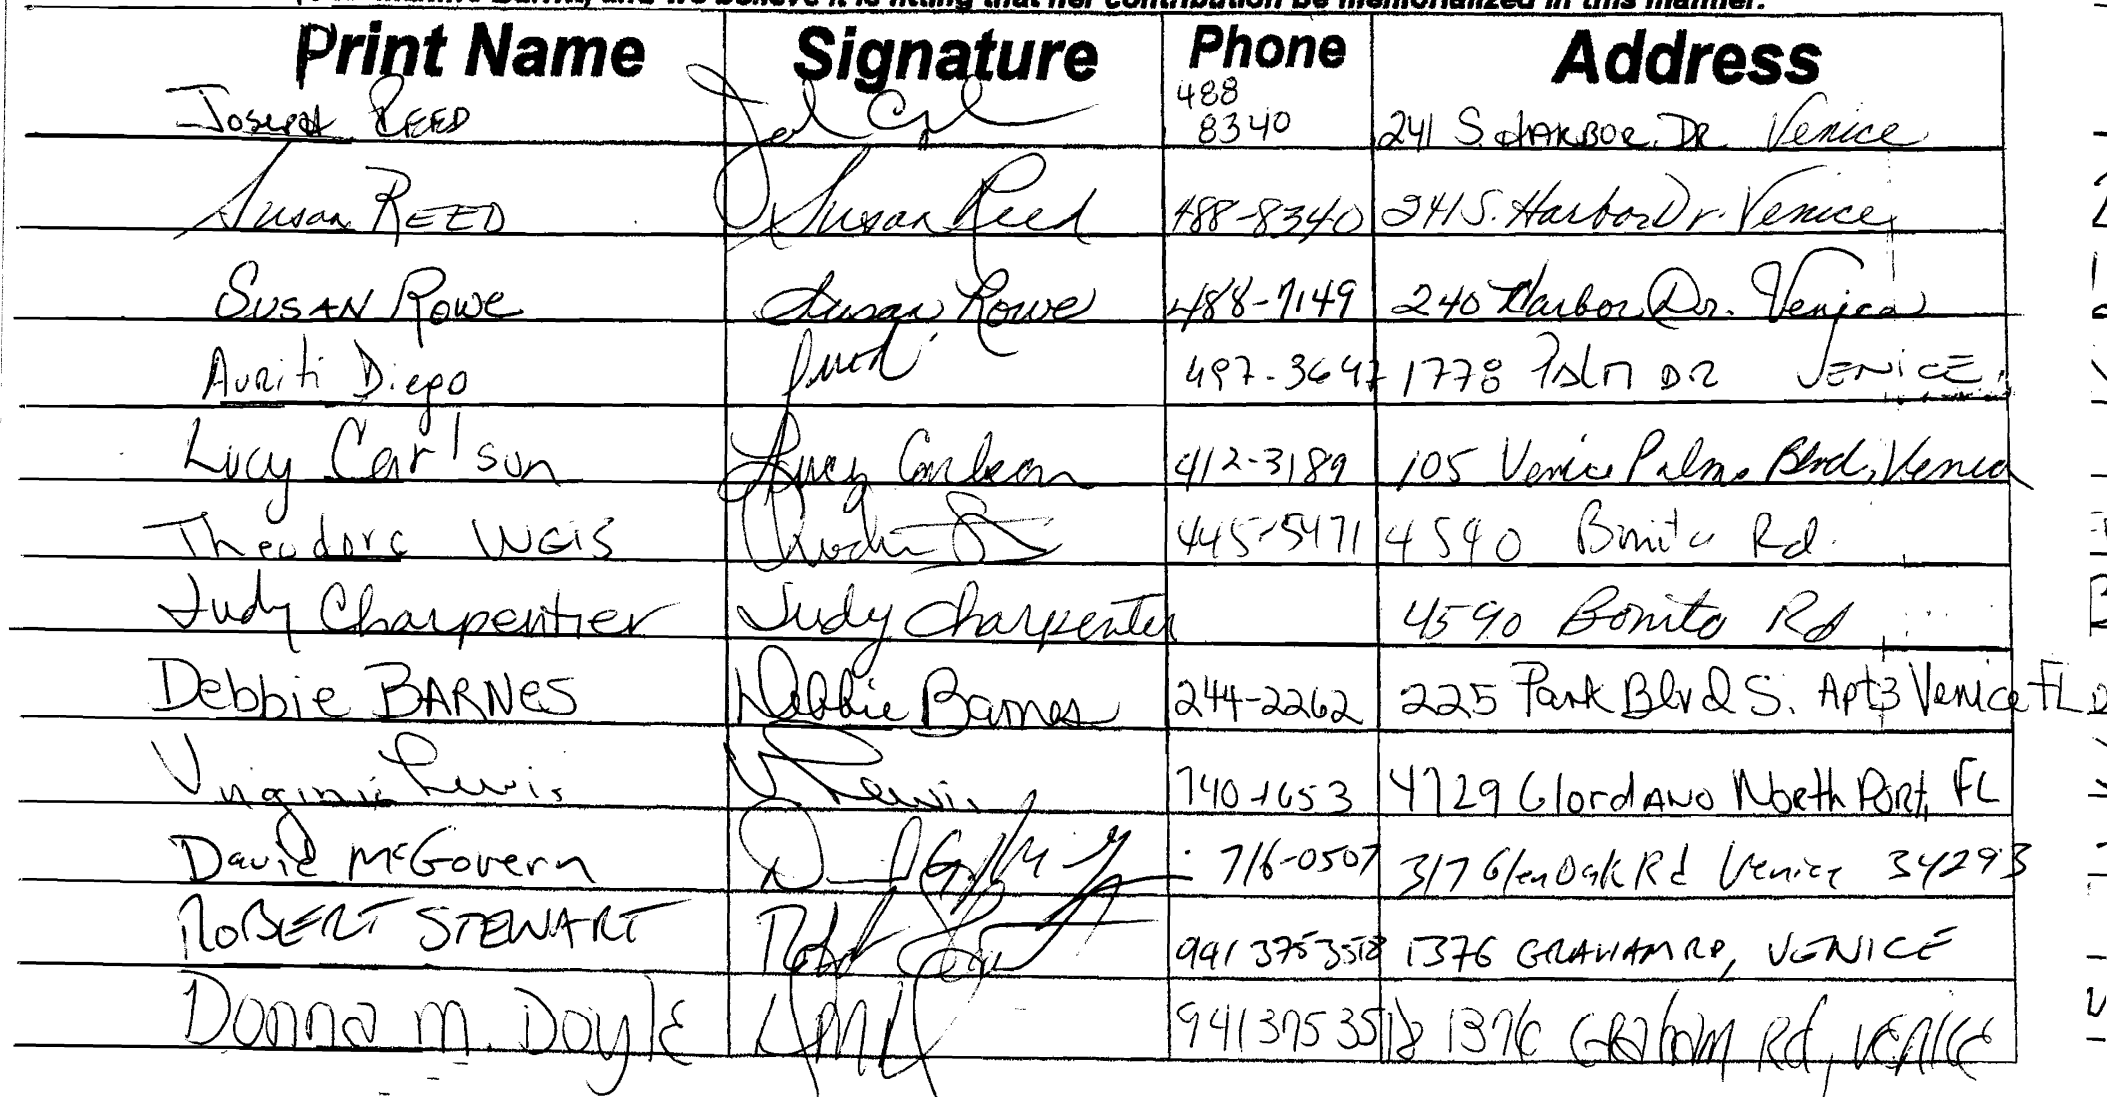 and we believe it is fitting that her contribution be memorialized in this manner.
Print Name Signature Phone Address
Joseph REED 488 8340 241 S. HARBOR DR Venice
Susan REED Susan Reed 488-8340 241 S. Harbor Dr. Venice
SUSAN ROWE Susan Rowe 488-7149 240 Harbor Dr. Venice
Auriti Diego 497-3647 1778 PALM DR VENICE
Lucy Carlson Lucy Carlson 412-3189 105 Venice Palms Blvd, Venice
Theodore Weis 445-5471 4590 Bonita Rd.
Judy Charpentier Judy Charpentier 4590 Bonito Rd
Debbie BARNES Debbie Barnes 244-2262 225 Park Blvd S. Apt 3 Venice FL
Virginia Lewis V Lewis 740-1653 4729 Glordano North Port, FL
David McGovern 716-0507 317 Glen Oak Rd Venice 34293
ROBERT STEWART 941 375 3518 1376 GRAHAM RD, VENICE
Donna M. Doyle 941 375 3518 1376 GRAham Rd, VENICE